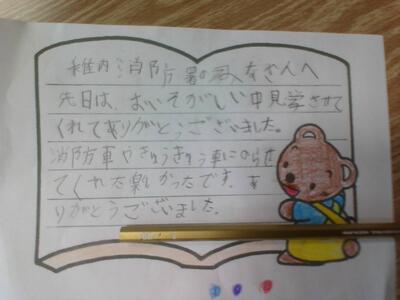 稚内消防署のみなさんへ
先日は、おいそがしい中見学させて
くれてありがとうございました。
消防車やきゅうきゅう車にのらせ
てくれた楽しかったです。あ
りがとうございました。